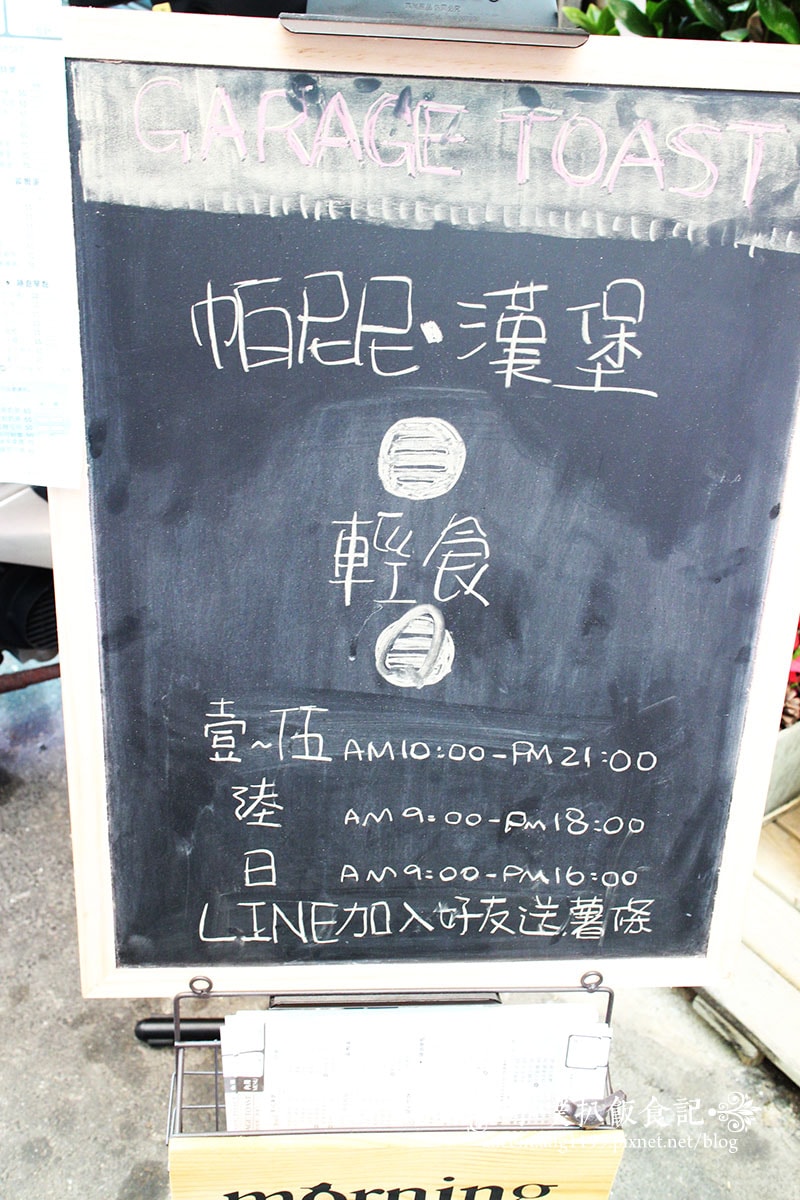 GARAGE TOAST
帕尼尼·漢堡
輕食
壹~伍 AM10:00-PM21:00
陸 AM9:00-PM18:00
日 AM9:00-PM16:00
LINE加入好友送薯條
扒飯食記
pixnet.net/blog
morning